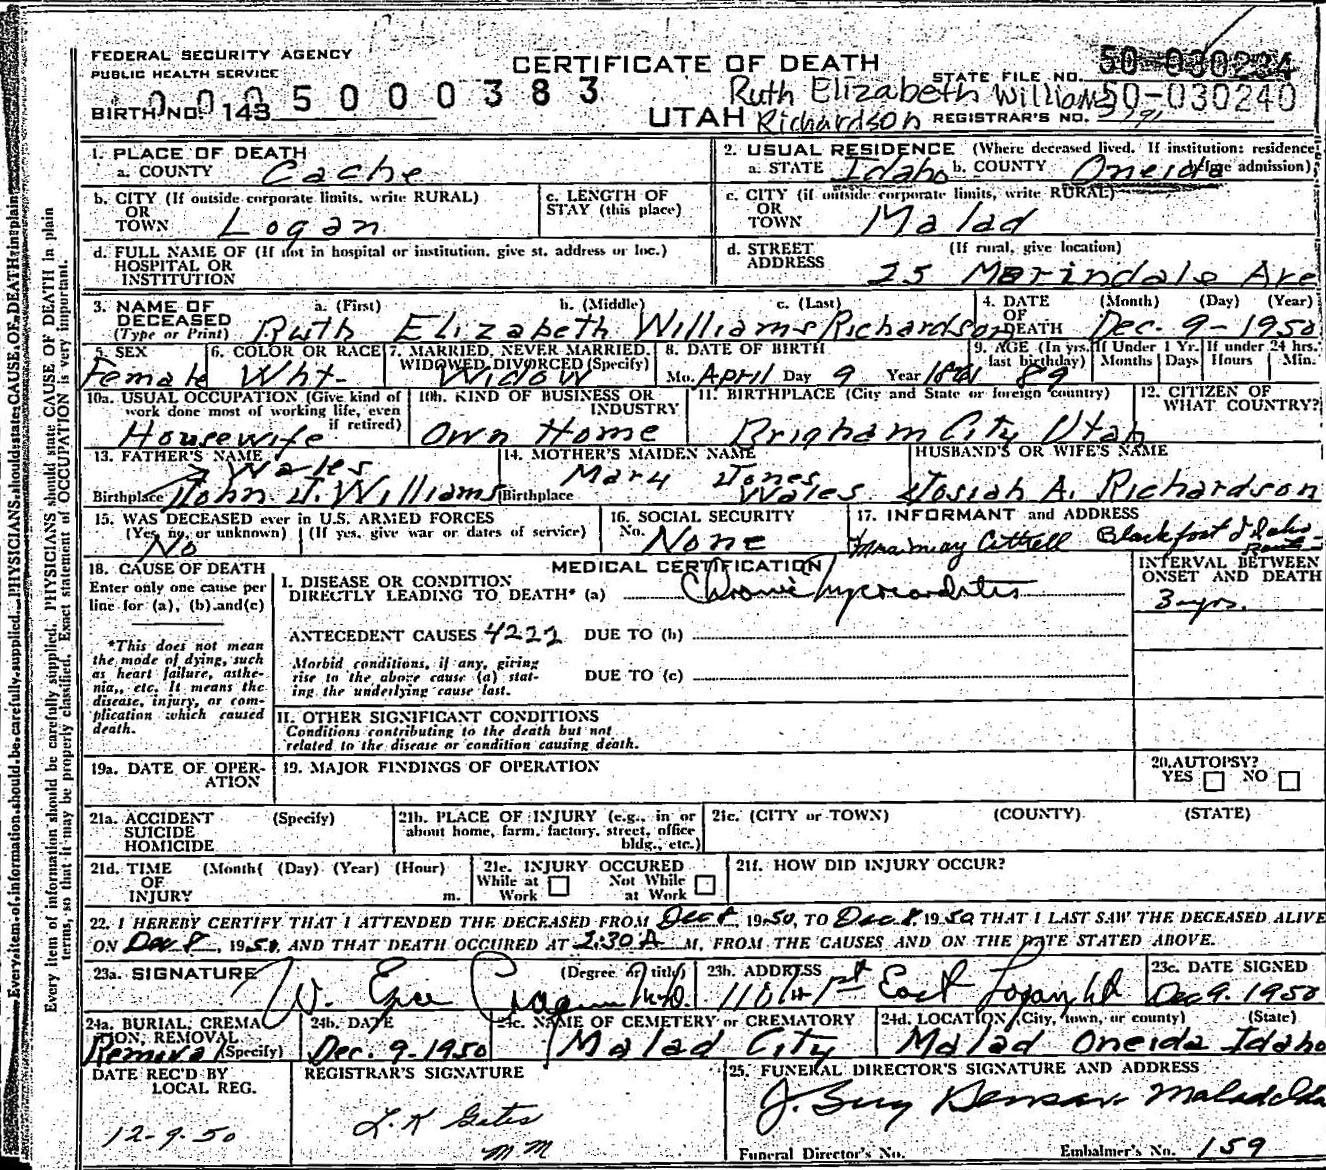 FEDERAL SECURITY AGENCY
PUBLIC HEALTH SERVICE
CERTIFICATE OF DEATH
STATE FILE NO. 50-030234
0 0 0 5 0 0 0 0 3 8 3
Ruth Elizabeth Williams 50-030240
BIRTH NO. 143
UTAH Richardson REGISTRAR'S NO. 791
Every item of information should be carefully supplied. PHYSICIANS should state CAUSE OF DEATH in plain
Every item of information should be carefully supplied. PHYSICIANS should state CAUSE OF DEATH in plain
terms, so that it may be properly classified. Exact statement of OCCUPATION is very important.
1. PLACE OF DEATH
a. COUNTY Cache
2. USUAL RESIDENCE (Where deceased lived. If institution: residence
a. STATE Idaho b. COUNTY Oneida before admission)
b. CITY (If outside corporate limits, write RURAL)
OR
TOWN Logan
c. LENGTH OF
STAY (this place)
c. CITY (if outside corporate limits, write RURAL)
OR
TOWN Malad
d. FULL NAME OF (If not in hospital or institution, give st. address or loc.)
HOSPITAL OR
INSTITUTION
d. STREET (If rural, give location)
ADDRESS
25 Marindale Ave
3. NAME OF a. (First) b. (Middle) c. (Last)
DECEASED
(Type or Print) Ruth Elizabeth Williams Richardson
4. DATE (Month) (Day) (Year)
OF
DEATH Dec. 9-1950
5. SEX
Female
6. COLOR OR RACE
Wht-
7. MARRIED, NEVER MARRIED,
WIDOWED, DIVORCED (Specify)
Widow
8. DATE OF BIRTH
Mo. April Day 9 Year 1861
9. AGE (In yrs. If Under 1 Yr. If under 24 hrs.
last birthday) Months Days Hours Min.
89
10a. USUAL OCCUPATION (Give kind of
work done most of working life, even
if retired)
Housewife
10b. KIND OF BUSINESS OR
INDUSTRY
Own Home
11. BIRTHPLACE (City and State or foreign country)
Brigham City Utah
12. CITIZEN OF
WHAT COUNTRY?
13. FATHER'S NAME
Wales
Birthplace John J. Williams
14. MOTHER'S MAIDEN NAME
Mary Jones
Birthplace Wales
HUSBAND'S OR WIFE'S NAME
Josiah A. Richardson
15. WAS DECEASED ever in U.S. ARMED FORCES
(Yes, no, or unknown) (If yes, give war or dates of service)
No
16. SOCIAL SECURITY
No. None
17. INFORMANT and ADDRESS
Mrs. May Blackfoot Idaho
18. CAUSE OF DEATH
Enter only one cause per
line for (a), (b) and (c)
*This does not mean
the mode of dying, such
as heart failure, asthe-
nia,, etc. It means the
disease, injury, or com-
plication which caused
death.
MEDICAL CERTIFICATION
I. DISEASE OR CONDITION
DIRECTLY LEADING TO DEATH* (a) Chronic Myocarditis
INTERVAL BETWEEN
ONSET AND DEATH
3-yrs.
ANTECEDENT CAUSES 4222 DUE TO (b)
Morbid conditions, if any, giving
rise to the above cause (a) stat- DUE TO (c)
ing the underlying cause last.
II. OTHER SIGNIFICANT CONDITIONS
Conditions contributing to the death but not
related to the disease or condition causing death.
19a. DATE OF OPER-
ATION
19. MAJOR FINDINGS OF OPERATION
20. AUTOPSY?
YES NO
21a. ACCIDENT (Specify)
SUICIDE
HOMICIDE
21b. PLACE OF INJURY (e.g., in or
about home, farm, factory, street, office
bldg., etc.)
21c. (CITY or TOWN) (COUNTY) (STATE)
21d. TIME (Month( (Day) (Year) (Hour)
OF
INJURY m.
21e. INJURY OCCURED
While at Not While
Work at Work
21f. HOW DID INJURY OCCUR?
22. I HEREBY CERTIFY THAT I ATTENDED THE DECEASED FROM Dec 8 1950, TO Dec. 8 1950 THAT I LAST SAW THE DECEASED ALIVE
ON Dec 8 1950, AND THAT DEATH OCCURED AT 2:30 A M, FROM THE CAUSES AND ON THE DATE STATED ABOVE.
23a. SIGNATURE (Degree or title)
W. M.D.
23b. ADDRESS
1st East Logan Ut
23c. DATE SIGNED
Dec 9. 1950
24a. BURIAL, CREMA-
TION, REMOVAL
Removal (Specify)
24b. DATE
Dec. 9-1950
24c. NAME OF CEMETERY or CREMATORY
Malad City
24d. LOCATION (City, town, or county) (State)
Malad Oneida Idaho
DATE REC'D BY
LOCAL REG.
12-9-50
REGISTRAR'S SIGNATURE
L. K Gates
MM
25. FUNERAL DIRECTOR'S SIGNATURE AND ADDRESS
J. Malad Ida
Funeral Director's No. Embalmer's No. 159